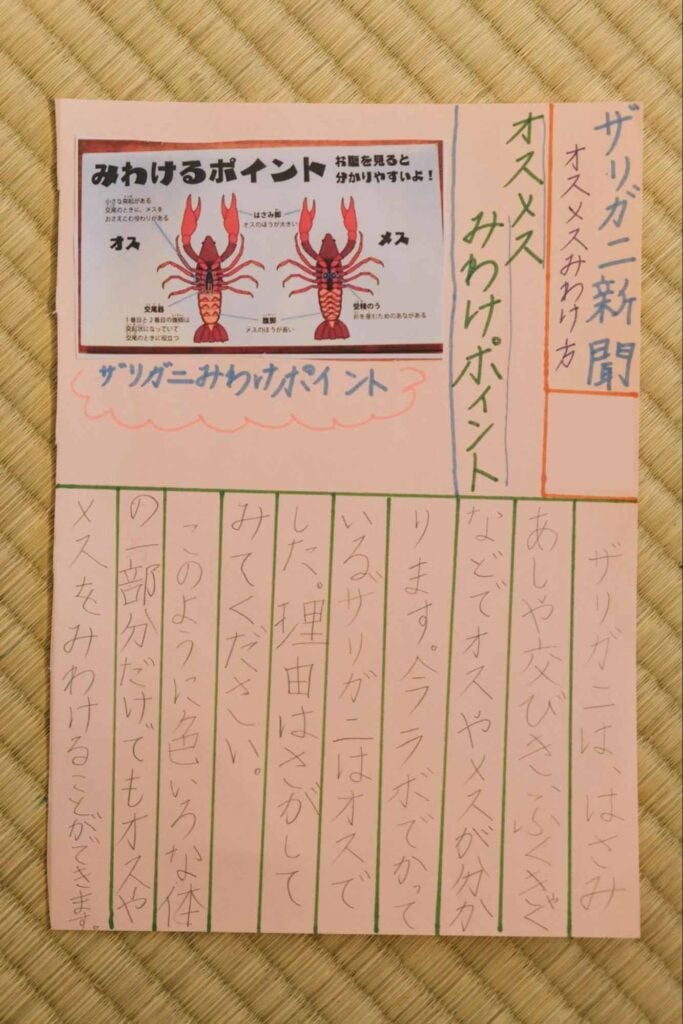 ザリガニ新聞
オスメスみわけ方
オスメス
みわけポイント
みわけるポイント
お腹を見ると
分かりやすいよ!
小さな突起がある
交尾のときに、メスを
おさえこむ役わりがある
オス
はさみ脚
オスのほうが大きい
メス
交尾器
1番目と2番目の腹脚は
になっていて
交尾のときに役立つ
腹脚
メスのほうが長い
受精のう
卵を産むためのあながある
ザリガニみわけポイント
ザリガニは、はさみ
あしや交びき、ふくきゃく
などでオスやメスが分か
ります。今ラボでかって
いるザリガニはオスで
した。理由はさがして
みてください。
このように色いろな体
の一部分だけでもオスや
メスをみわけることができます。